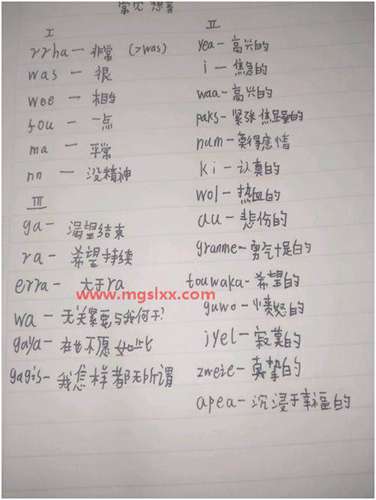 常见
I
rrha — 非常 (>was)
was — 很
wee — 相当
fou — 一点
ma — 平常
nn — 没精神
III
ga — 渴望结束
ra — 希望持续
erra — 大于ra
www.mgslxx.com
wa — 无关紧要与我何干?
gaya — 再也不愿如此
gagis — 我怎样都无所谓
II
yea — 高兴的
i — 焦急的
waa — 高兴的
paks — 紧张 焦虑的
num — 莫得感情
ki — 认真的
wol — 热血的
au — 悲伤的
granme — 勇气十足的
touwaka — 希望的
guwo — 愤怒的
jyel — 寂寞的
zweie — 真挚的
apea — 沉浸于幸福的